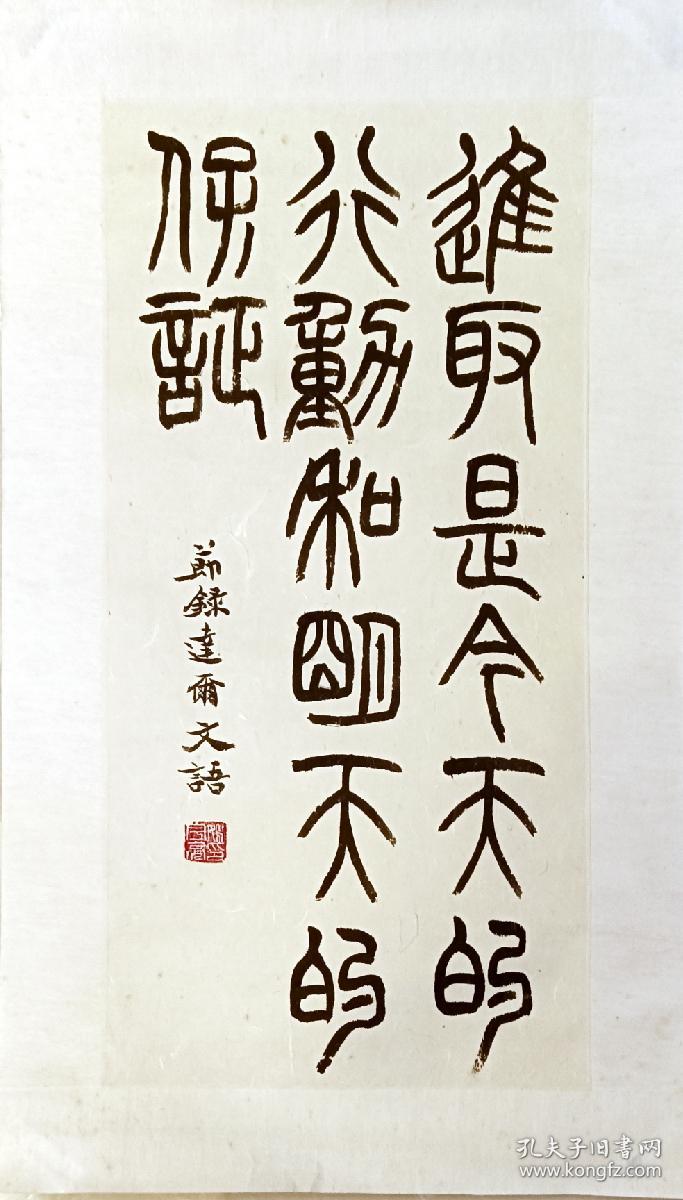 進取是今天的
行動和明天的
保証
節錄達爾文語
孔夫子旧書网
www.kongfz.com